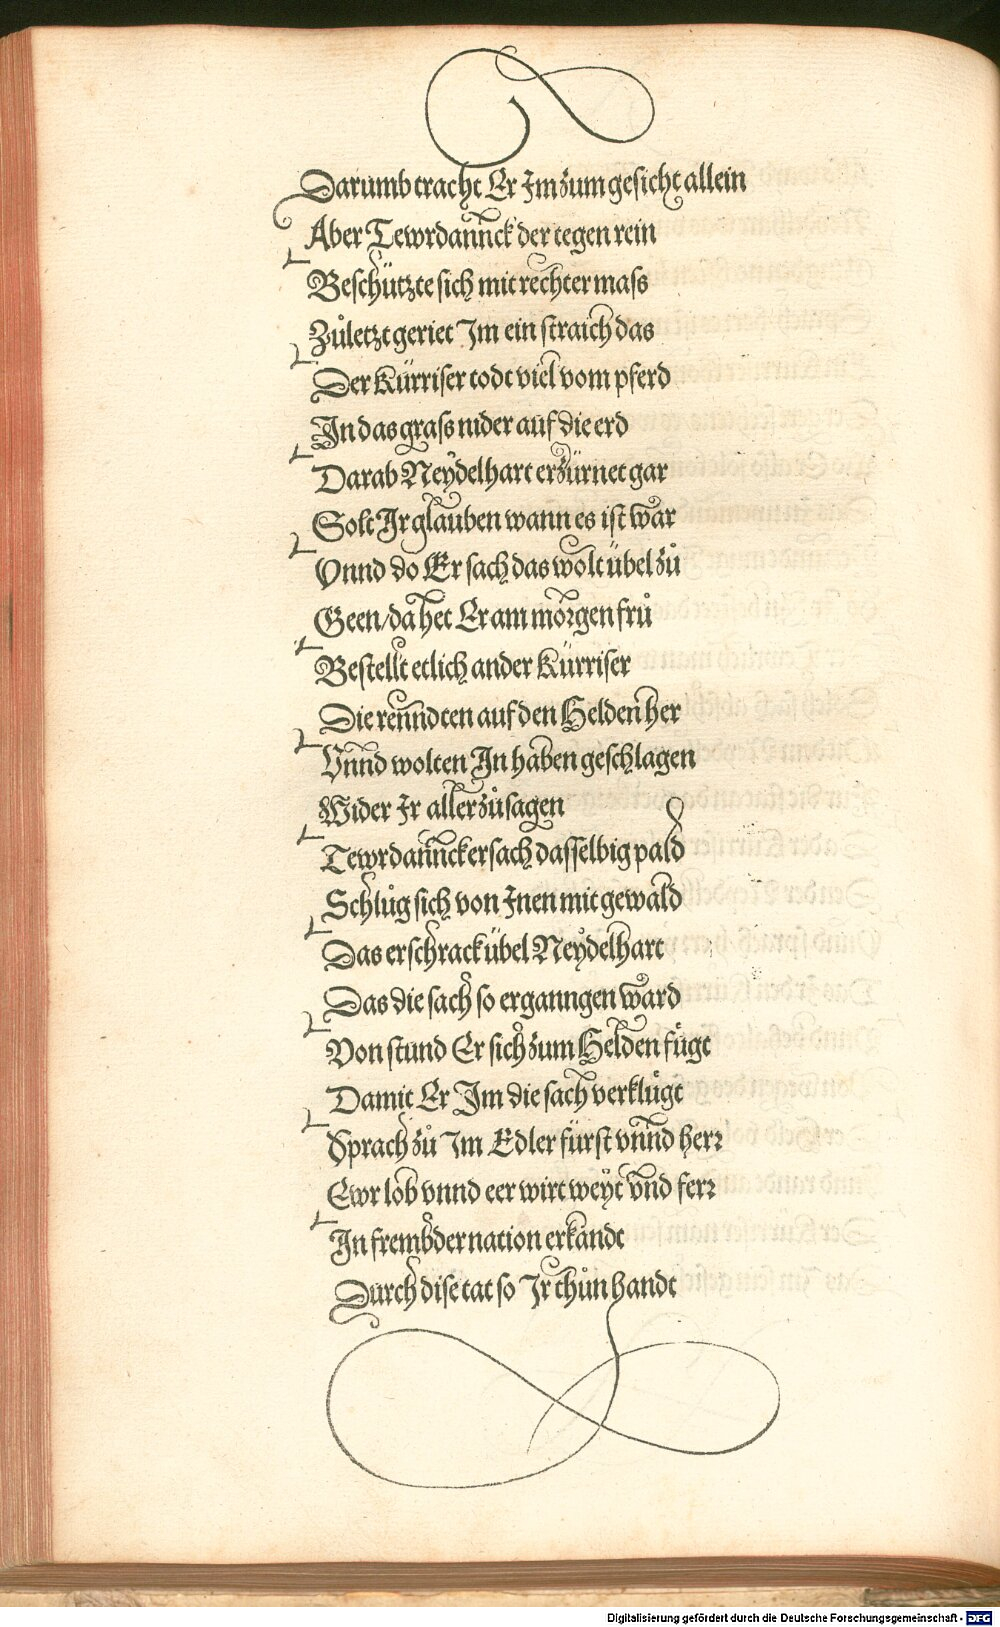 Darumb tracht Er Im zum gesicht allein
Aber Tewrdannck der tegen rein
Beschützte sich mit rechter mass
Zůletzt geriet Im ein straich das
Der Kürriser todt viel vom pferd
In das grass nider auf die erd
Darab Neÿdelhart erzürnet gar
Solt Ir glauben wann es ist war
Vnnd do Er sach das wolt übel zů
Geen/da het Er am morgen frů
Bestellt etlich ander Kürriser
Die renndten auf den Helden her
Vnnd wolten In haben geschlagen
Wider Ir aller zůsagen
Tewrdannck ersach dasselbig pald
Schlůg sich von Inen mit gewald
Das erschrack übel Neÿdelhart
Das die sach so erganngen ward
Von stund Er sich zum Helden fůgt
Damit Er Im die sach verklůgt
Sprach zů Im Edler fürst vnnd herr
Ewr lob vnnd eer wirt weÿt vnd ferr
In frembder nation erkandt
Durch dise tat so Ir thůn handt
Digitalisierung gefördert durch die Deutsche Forschungsgemeinschaft - DFG